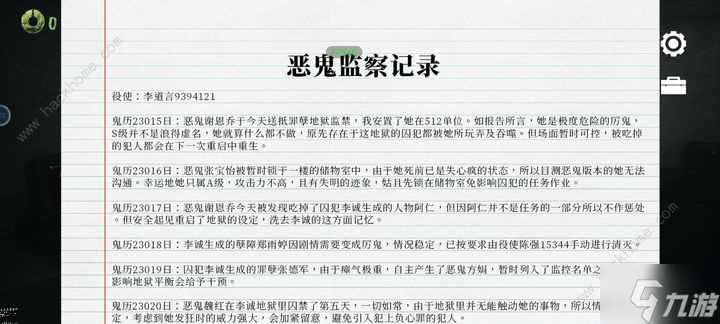 0
恶鬼监察记录
役使：李道言9394121
鬼历23015日：恶鬼谢恩乔于今天送抵罪孽地狱监禁，我安置了她在512单位。如报告所言，她是极度危险的厉鬼，
S级并不是浪得虚名，她就算什么都不做，原先存在于这地狱的囚犯都被她所玩弄及吞噬。但场面暂时可控，被吃掉
的犯人都会在下一次重启中重生。
鬼历23016日：恶鬼张宝怡被暂时锁于一楼的储物室中，由于她死前已是失心疯的状态，所以目测恶鬼版本的她无法
沟通。幸运地她只属A级，攻击力不高，且有失明的迹象，姑且先锁在储物室免影响囚犯的任务作业。
鬼历23017日：恶鬼谢恩乔今天被发现吃掉了囚犯李诚生成的人物阿仁，但因阿仁并不是任务的一部分所以不作惩处
。但安全起见重启了地狱的设定，洗去李诚的这方面记忆。
鬼历23018日：李诚生成的孽障郑雨婷因剧情需要变成厉鬼，情况稳定，已按要求由役使陈强15344手动进行清灭。
鬼历23019日：囚犯李诚生成的罪孽张德军，由于瘴气极重，自主产生了恶鬼方娟，暂时列入了监控名单之
影响地狱平衡会给予干预。
鬼历23020日：恶鬼魏红在李诚地狱里囚禁了第五天，一切如常，由于地狱里并无能触动她的事物，所以情
定，考虑到她发狂时的威力强大，会加紧留意，避免引入犯上负心罪的犯人。
九游